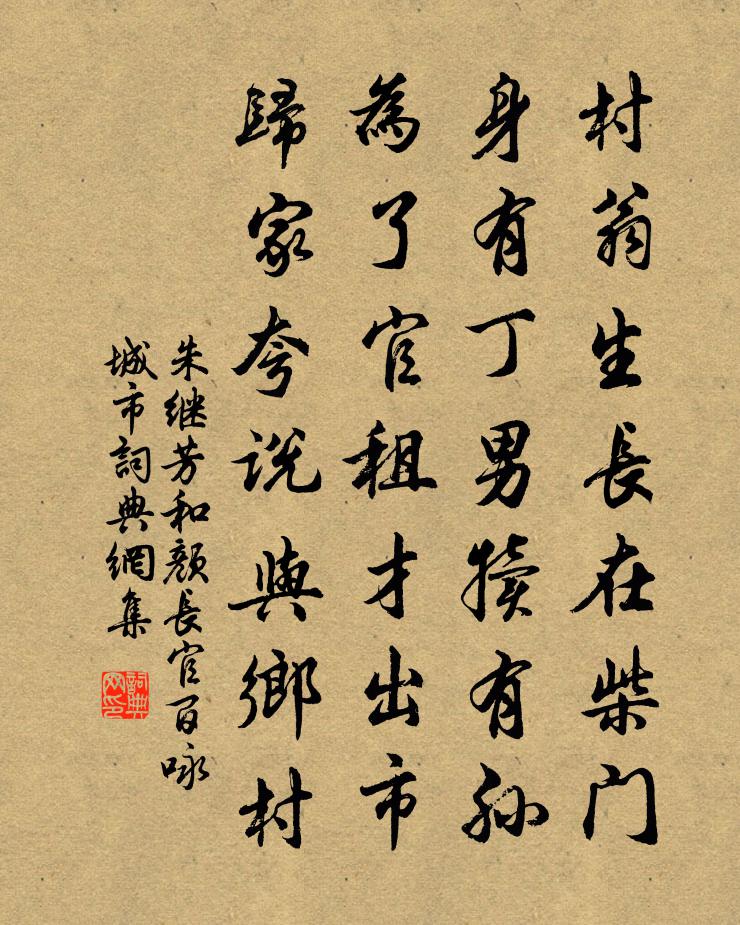 村翁生長在柴门
身有丁男犊有孙
為了官租才出市
歸家夸说與鄉村
朱继芳和颜长官百咏
城市詞典網集
詞典网印